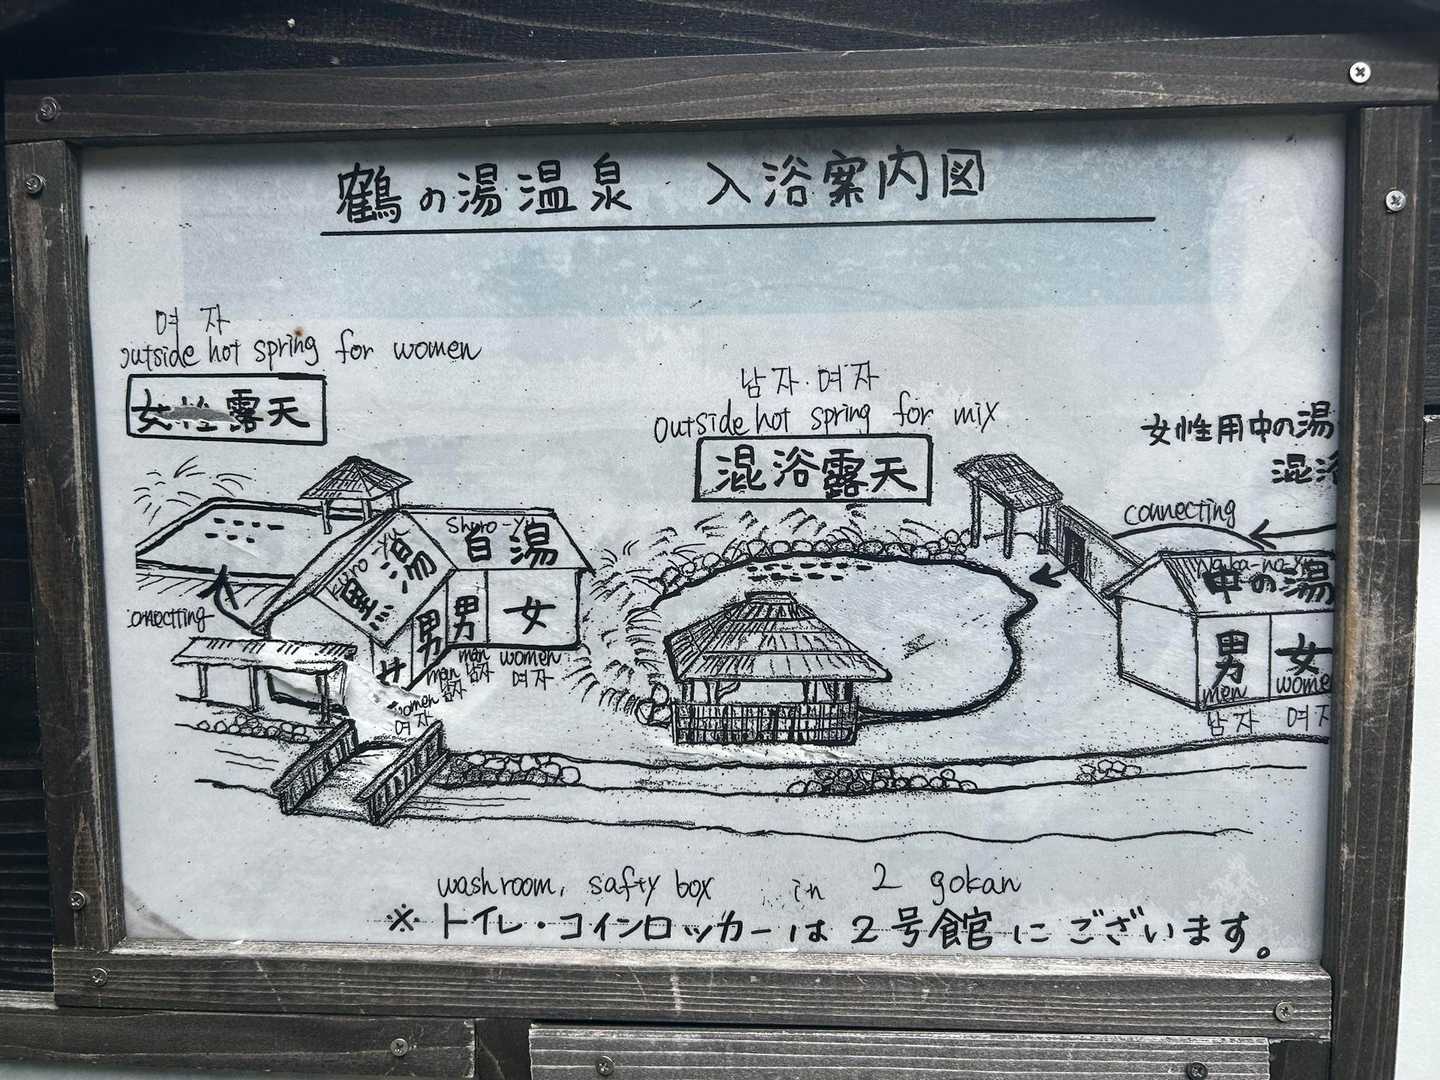 鶴の湯温泉 入浴案内図
여자
outside hot spring for women
女性露天
남자·여자
outside hot spring for mix
混浴露天
女性用中の湯
混浴
connecting
Shiro-yu
白湯
Kuro-yu
黒湯
男
男
女
女
onnectting
man
남자
women
여자
man
남자
women
여자
Naka-no-Yu
中の湯
男
女
men
women
남자
여자
washroom, safty box in 2 gokan
※トイレ・コインロッカーは2号館にございます。